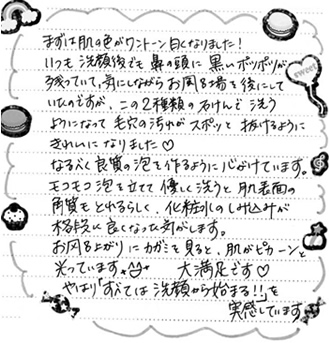 まずは肌の色がワントーン白くなりました!
いつも洗顔後でも鼻の頭に黒いポツポツが
残っていて、気にしながらお風呂場を後にして
いたのですが、この2種類の石けんで洗う
ようになって毛穴の汚れがスポッと抜けるように
きれいになりました♡
なるべく良質の泡を作るように心がけています。
モコモコ泡を立てて優しく洗うと肌表面の
角質もとれるらしく、化粧水のしみ込みが
格段に良くなった気がします。
お風呂上がりにカガミを見ると、肌がピカーンと
光っています。 大満足です♡
やはり「すべては洗顔から始まる!!」を
実感しています
sweet